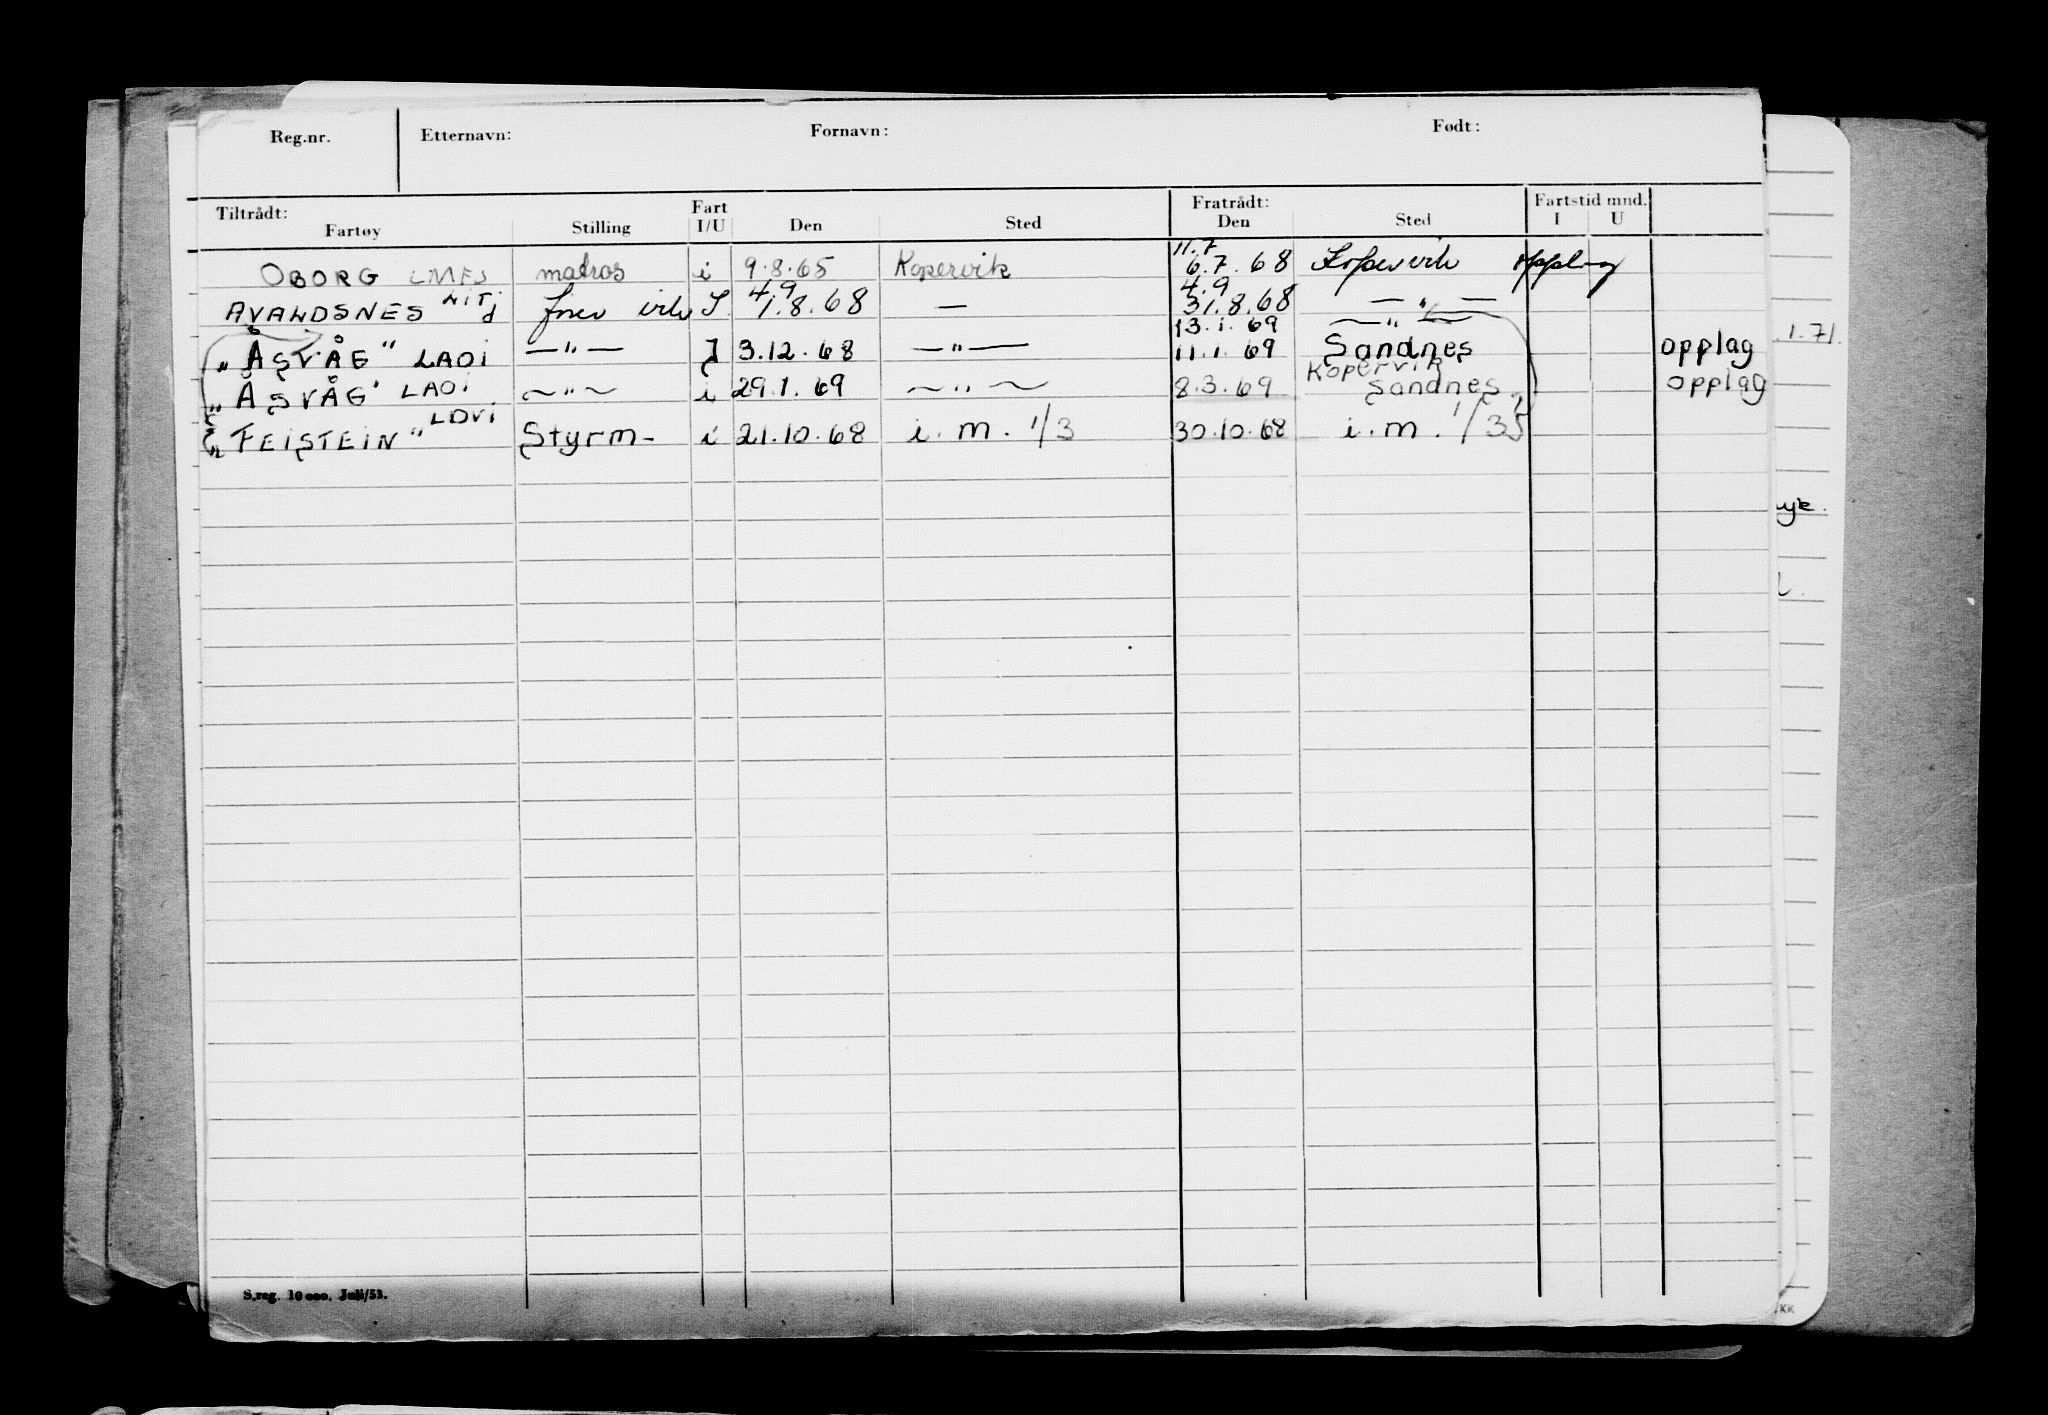 Reg.nr. Etternavn: Fornavn: Født:
Tiltrådt: Fratrådt: Fartstid mnd.
Fartøy Stilling Fart I/U Den Sted Den Sted I U
11.7
OBORG LMFS matros i 9.8.65 Kopervik 6.7.68 Kopervik opplag
4.9 4.9
AVALDSNES 1.8.68 — 31.8.68 —"—
13.1.69 —"—
"ÅSVÅG" LAOI —"— I 3.12.68 —"— 11.1.69 Sandnes opplag
Kopervik
"ÅSVÅG" LAOI —"— i 29.1.69 —"— 8.3.69 Sandnes opplag
"FEISTEIN" LDVI Styrm- i 21.10.68 i.m. 1/3 30.10.68 i.m. 1/35
1.71.
S.reg. 10 000. Juli/53.
KK